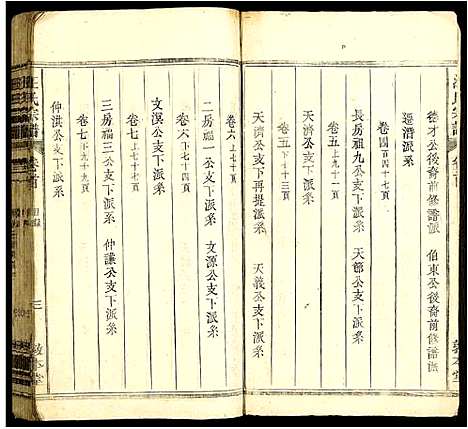 德才公後裔前修譜派 伯東公後裔前修譜派
遷潛派系
卷四百四十七頁
長房祖九公支下派系 天爵公支下派系
卷五上九十一頁
天濟公支下再堤派系 天義公支下派系
卷五下七十三頁
卷六上七十一頁
二房福一公支下派系 文源公支下派系
卷六下七十四頁
文溟公支下派系
卷七上七十七頁
三房福三公支下派系 仲謙公支下派系
卷七下九十九頁
仲洪公支下派系
汪氏宗譜 卷首 目錄 三 敦本堂